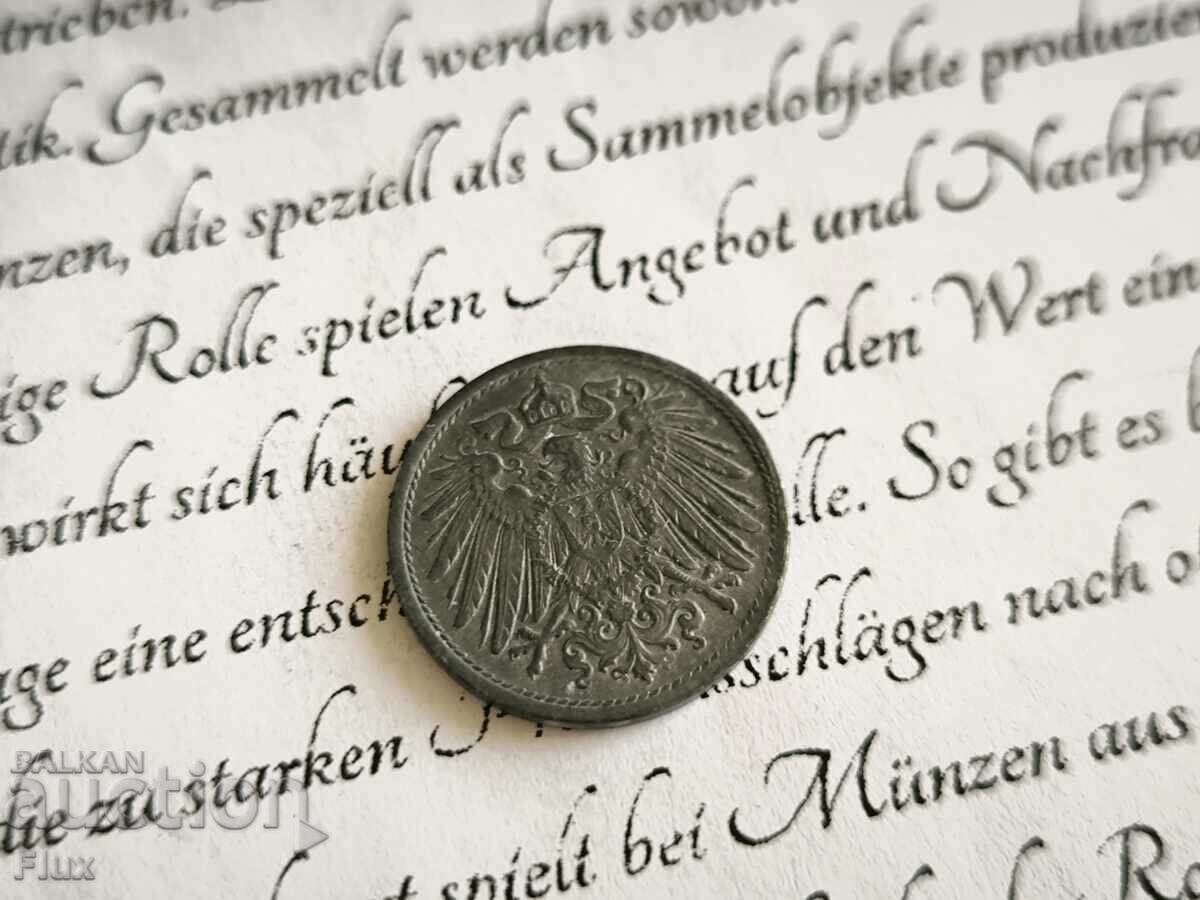 trieben.
tik. Gesammelt werden sowohl
nzen, die speziell als Sammelobjekte produzie
ige Rolle spielen Angebot und Nachfra
wirkt sich häu auf den Wert ein
age eine entsch lle. So gibt es
die zu starken P sschlägen nach o
t spielt bei Münzen aus
Ro
BALKAN
auction
Flux